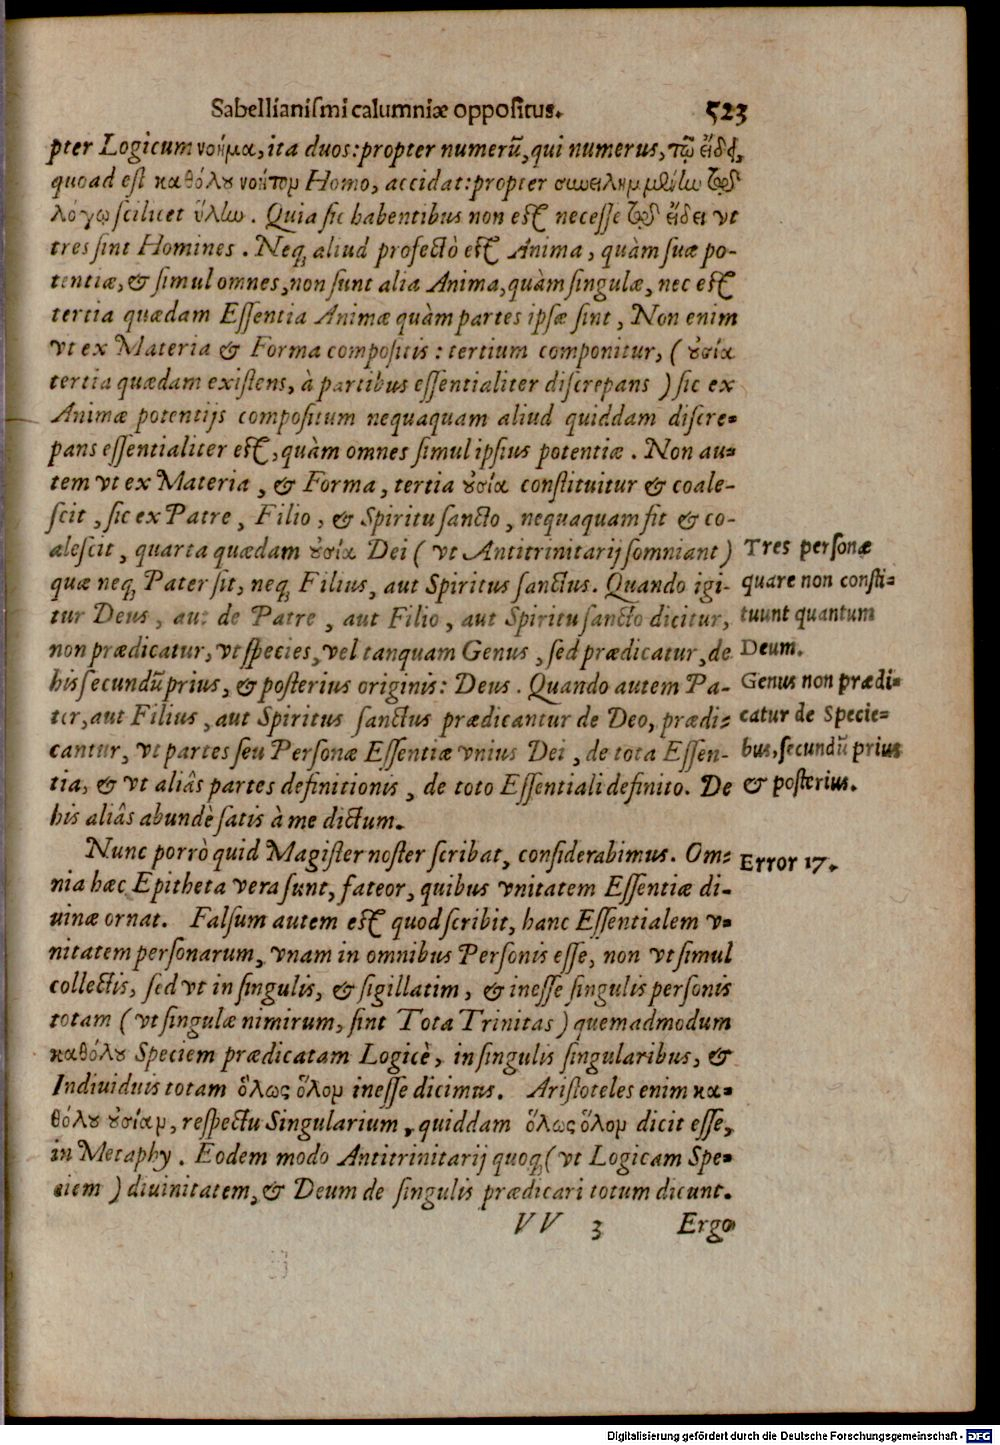 Sabellianiſmi calumniæ oppoſitus. 523
pter Logicum νόημα, ita duos: propter numerũ, qui numerus, τῷ εἴδει,
quoad eſt καθόλȣ νοητὸν Homo, accidat: propter
λόγῳ ſcilicet ὕλλω. Quia ſic habentibus non eſt neceſſe εἴδει vt
tres ſint Homines. Neq; aliud profectò eſt Anima, quàm ſuæ po-
tentiæ, & ſimul omnes, non ſunt alia Anima, quàm ſingulæ, nec eſt
tertia quædam Eſſentia Animæ quàm partes ipſæ ſint, Non enim
vt ex Materia & Forma compoſitis: tertium componitur, (ȣ̓σία
tertia quædam exiſtens, à partibus eſſentialiter diſcrepans) ſic ex
Animæ potentijs compoſitum nequaquam aliud quiddam diſcre-
pans eſſentialiter eſt, quàm omnes ſimul ipſius potentiæ. Non au-
tem vt ex Materia, & Forma, tertia ȣ̓σία conſtituitur & coale-
ſcit, ſic ex Patre, Filio, & Spiritu ſancto, nequaquam fit & co-
aleſcit, quarta quædam ȣ̓σία Dei (vt Antitrinitarij ſomniant)
quæ neq; Pater ſit, neq; Filius, aut Spiritus ſanctus. Quando igi-
tur Deus, aut de Patre, aut Filio, aut Spiritu ſancto dicitur,
non prædicatur, vt ſpecies, vel tanquam Genus, ſed prædicatur, de
his ſecundũ prius, & poſterius originis: Deus. Quando autem Pa-
ter, aut Filius, aut Spiritus ſanctus prædicantur de Deo, prædi-
cantur, vt partes ſeu Perſonæ Eſſentiæ vnius Dei, de tota Eſſen-
tia, & vt aliâs partes definitionis, de toto Eſſentiali definito. De
his aliâs abundè ſatis à me dictum.
Tres perſonæ
quare non conſti-
tuunt quantum
Deum.
Genus non prædi-
catur de Specie-
bus, ſecundũ prius
& poſterius.
Nunc porrò quid Magiſter noſter ſcribat, conſiderabimus. Om-
nia hæc Epitheta vera ſunt, fateor, quibus vnitatem Eſſentiæ di-
uinæ ornat. Falſum autem eſt quod ſcribit, hanc Eſſentialem v-
nitatem perſonarum, vnam in omnibus Perſonis eſſe, non vt ſimul
collectis, ſed vt in ſingulis, & ſigillatim, & ineſſe ſingulis perſonis
totam (vt ſingulæ nimirum, ſint Tota Trinitas) quemadmodum
καθόλȣ Speciem prædicatam Logicè, in ſingulis ſingularibus, &
Indiuiduis totam ὅλως ὅλον ineſſe dicimus. Ariſtoteles enim κα-
θόλȣ ȣ̓σίαν, reſpectu Singularium, quiddam ὅλως ὅλον dicit eſſe,
in Metaphy. Eodem modo Antitrinitarij quoq; (vt Logicam Spe-
ciem) diuinitatem, & Deum de ſingulis prædicari totum dicunt.
Error 17.
VV 3 Ergo
Digitalisierung gefördert durch die Deutsche Forschungsgemeinschaft - DFG